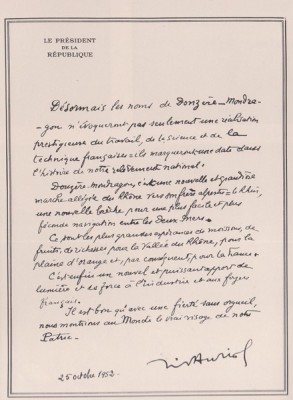 LE PRÉSIDENT
DE LA
RÉPUBLIQUE
Désormais les noms de Donzère-Mondra-
-gon n'évoqueront pas seulement une réalisation
prestigieuse du travail, de la science et de la
technique françaises : ils marqueront une date dans
l'histoire de notre relèvement national.
Donzère-Mondragon, c'est une nouvelle et grandiose
marche allègre du Rhône vers son frère alpestre le Rhin,
une nouvelle brèche pour une plus facile et plus
féconde navigation entre les Deux Mers.
Ce sont les plus grandes espérances de moisson, de
fruits, de richesses pour la Vallée du Rhône, pour la
plaine d'Orange et, par conséquent, pour la France.
C'est enfin un nouvel et puissant apport de
lumière et de force à l'industrie et aux foyers
français.
Il est bon qu'avec une fierté sans orgueil,
nous montrions au Monde le vrai visage de notre
Patrie.
25 octobre 1952.